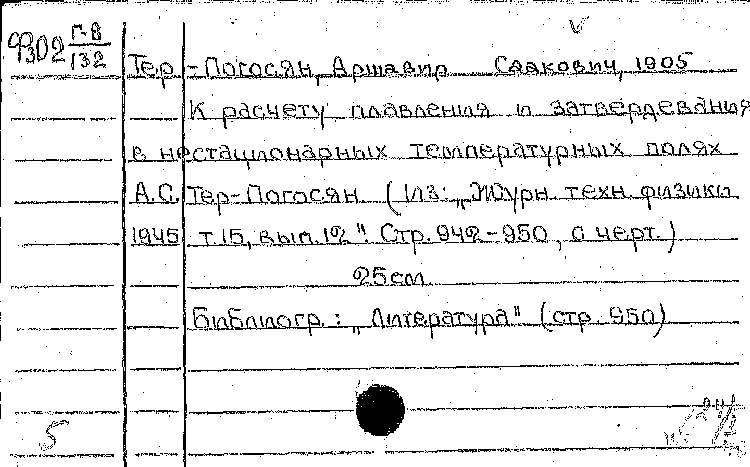 Г-8
9302 132
Тер-Погосян, Аршавир Саакович, 1905
К расчету плавления и затвердевания
в нестационарных температурных полях
А.С. Тер-Погосян (Из: „Журн. техн. физики
1945 т. 15, вып. 12". Стр. 942-950, с черт.)
25 см
Библиогр.: „Литература" (стр. 950)
5